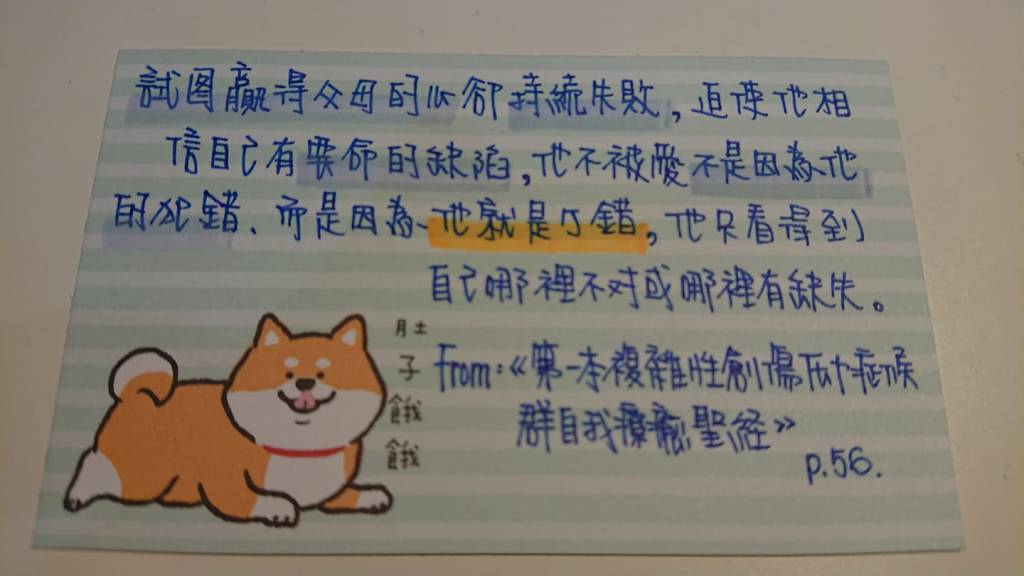 試图贏得父母的心卻持続失敗，迫使他相
信自己有要命的缺陷，他不被愛不是因為他
的犯錯、而是因為他就是个錯，他只看得到
自己哪裡不对或哪裡有缺失。
月土
子
餓
餓
From：《第一本複雜性創傷压力症候
群自我療癒聖経》
p.56.